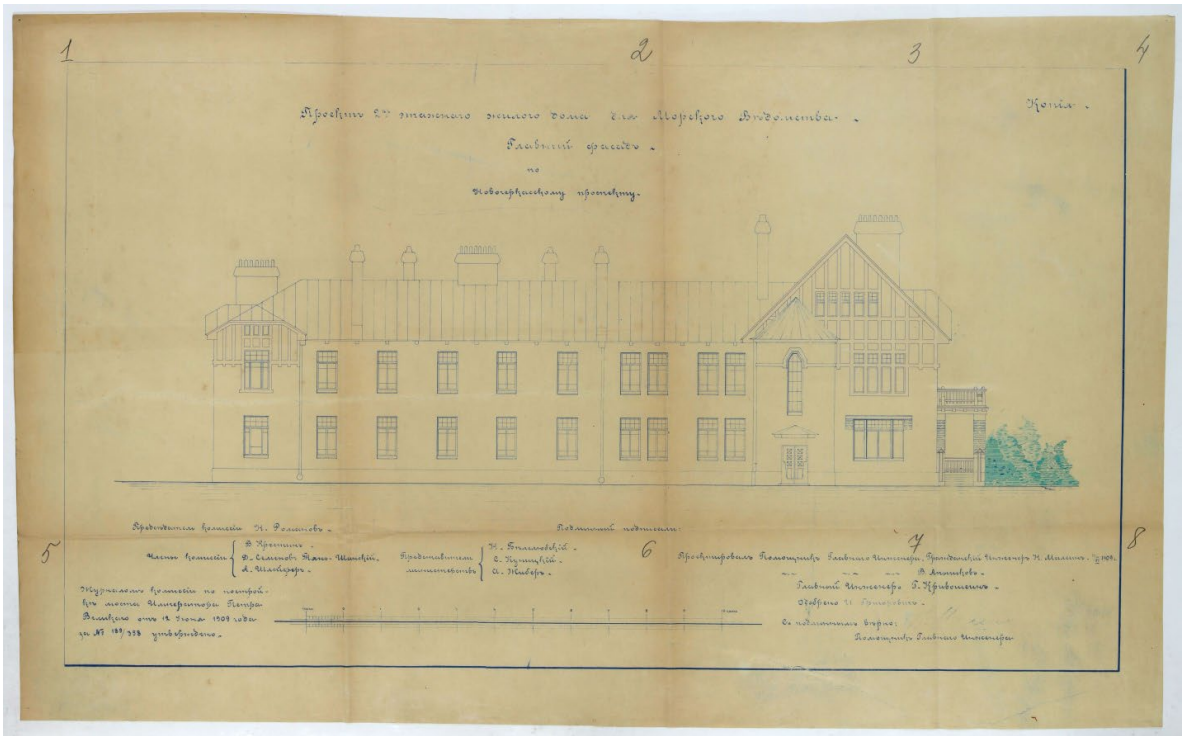 1
2
3
4
Копія.
Проектъ 2хъ этажнаго жилого дома для Морского Вѣдомства.
Главный фасадъ.
по
Новочеркасскому проспекту.
Предсѣдатель Комиссіи Н. Романовъ.
Подлинный подписали:
5
6
7
8
Члены Комиссіи
Д. Семеновъ Тянъ-Шанскій.
Представители министерствъ
Проектировалъ Помощникъ Главнаго Инженера, Гражданскій Инженеръ К. 1909.
В. Апышковъ.
Главный Инженеръ Г. Кривошеинъ.
Одобрено И. Григоровичъ.
Съ подлиннымъ вѣрно:
Помощникъ Главнаго Инженера
Журналомъ Комиссіи по построй-
кѣ моста Императора Петра
Великаго отъ 18 Іюня 1909 года
за № 189/398 утверждено.